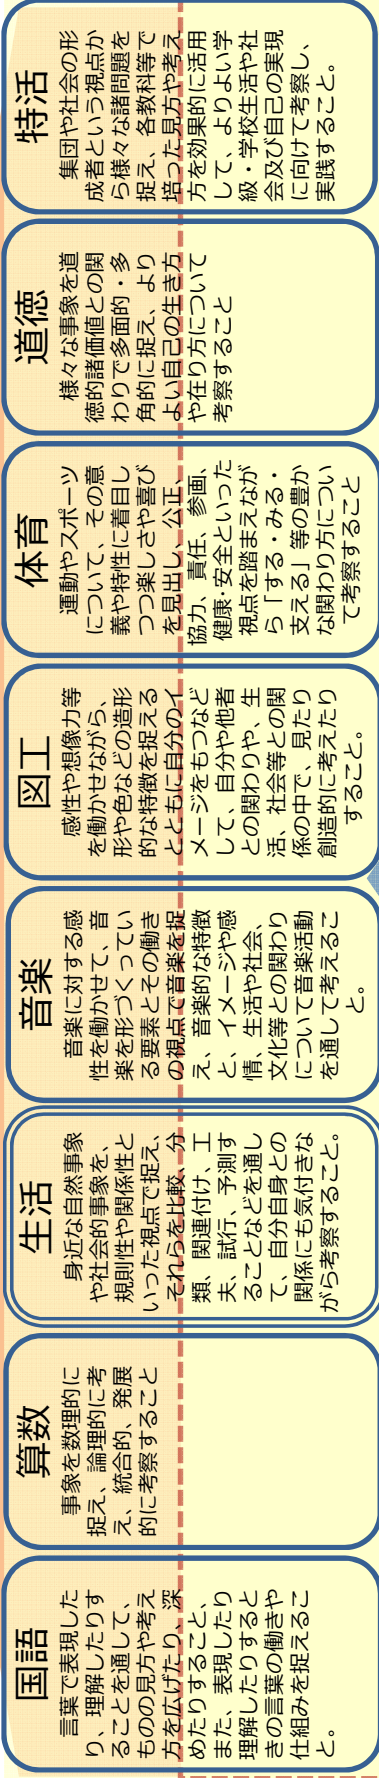 国語
言葉で表現した
り、理解したりす
ることを通して、
ものの見方や考え
方を広げたり、深
めたりすること、
また、表現したり
理解したりすると
きの言葉の働きや
仕組みを捉えるこ
と。
算数
事象を数理的に
捉え、論理的に考
え、統合的、発展
的に考察すること
生活
身近な自然事象
や社会的事象を、
規則性や関係性と
いった視点で捉え、
それらを比較、分
類、関連付け、工
夫、試行、予測す
ることなどを通し
て、自分自身との
関係にも気付きな
がら考察すること。
音楽
音楽に対する感
性を働かせて、音
楽を形づくってい
る要素とその働き
の視点で音楽を捉
え、音楽的な特徴
と、イメージや感
情、生活や社会、
文化等との関わり
について音楽活動
を通して考えるこ
と。
図工
感性や想像力等
を働かせながら、
形や色などの造形
的な特徴を捉える
とともに自分のイ
メージをもつなど
して、自分や他者
との関わりや、生
活、社会等との関
係の中で、見たり
創造的に考えたり
すること。
体育
運動やスポーツ
について、その意
義や特性に着目し
つつ楽しさや喜び
を見出し、公正、
協力、責任、参画、
健康・安全といった
視点を踏まえなが
ら「する・みる・
支える」等の豊か
な関わり方につい
て考察すること
道徳
様々な事象を道
徳的諸価値との関
わりで多面的・多
角的に捉え、より
よい自己の生き方
や在り方について
考察すること
特活
集団や社会の形
成者という視点か
ら様々な諸問題を
捉え、各教科等で
培った見方や考え
方を効果的に活用
して、よりよい学
級・学校生活や社
会及び自己の実現
に向けて考察し、
実践すること。